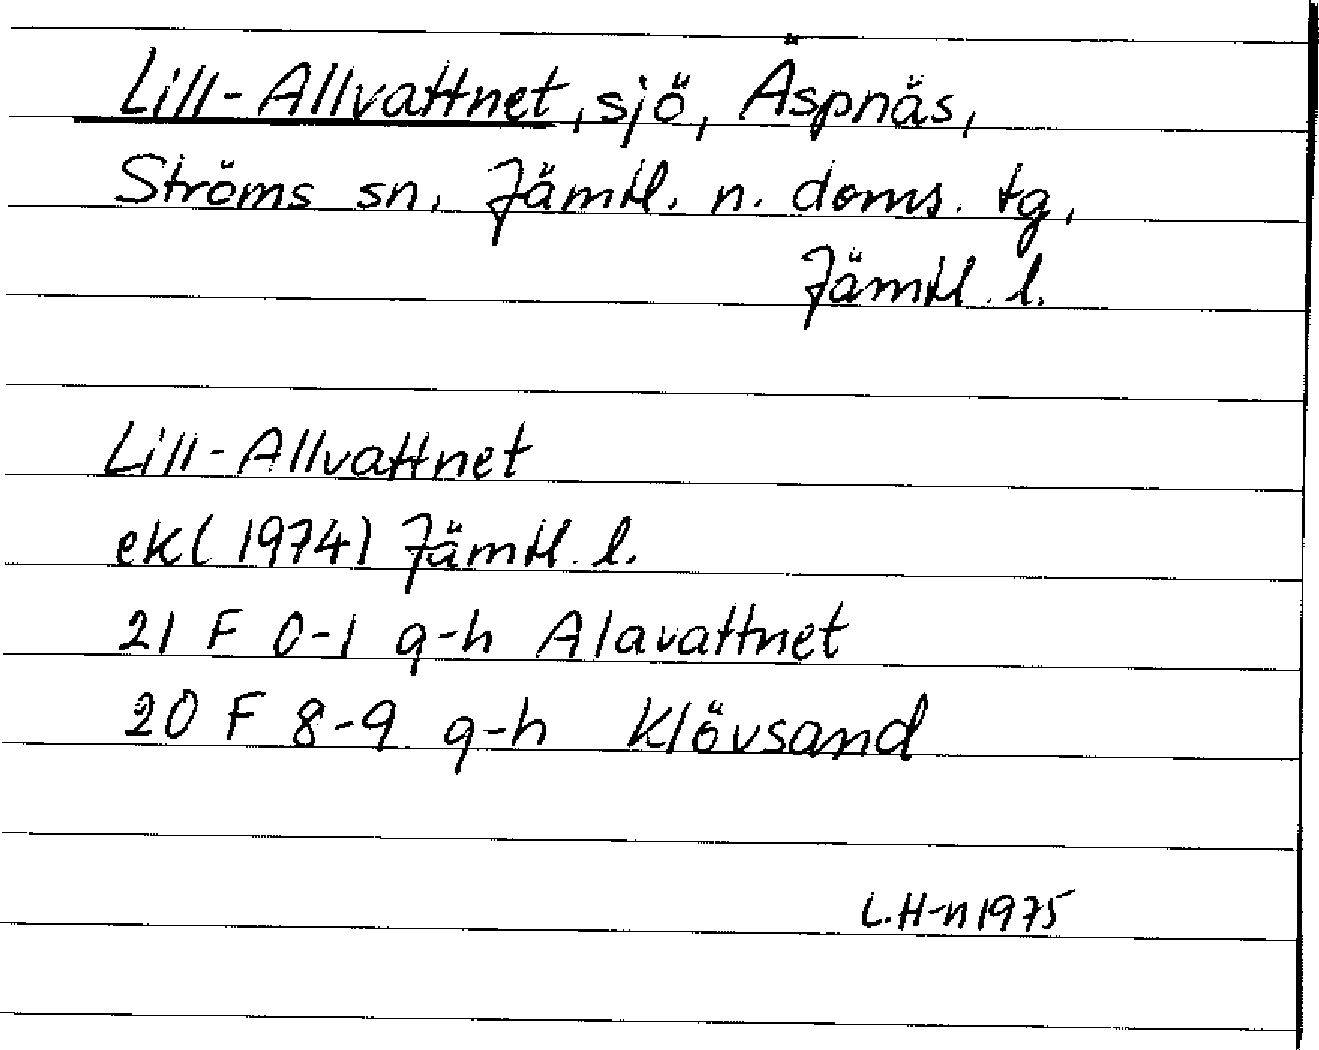 Lill-Allvattnet, sjö, Äspnäs,
Ströms sn, Jämtl. n. doms. tg,
Jämtl. l.
Lill-Allvattnet
ek (1974) Jämtl. l.
21 F 0-1 g-h Alavattnet
20 F 8-9 g-h Klövsand
L.H-n 1975